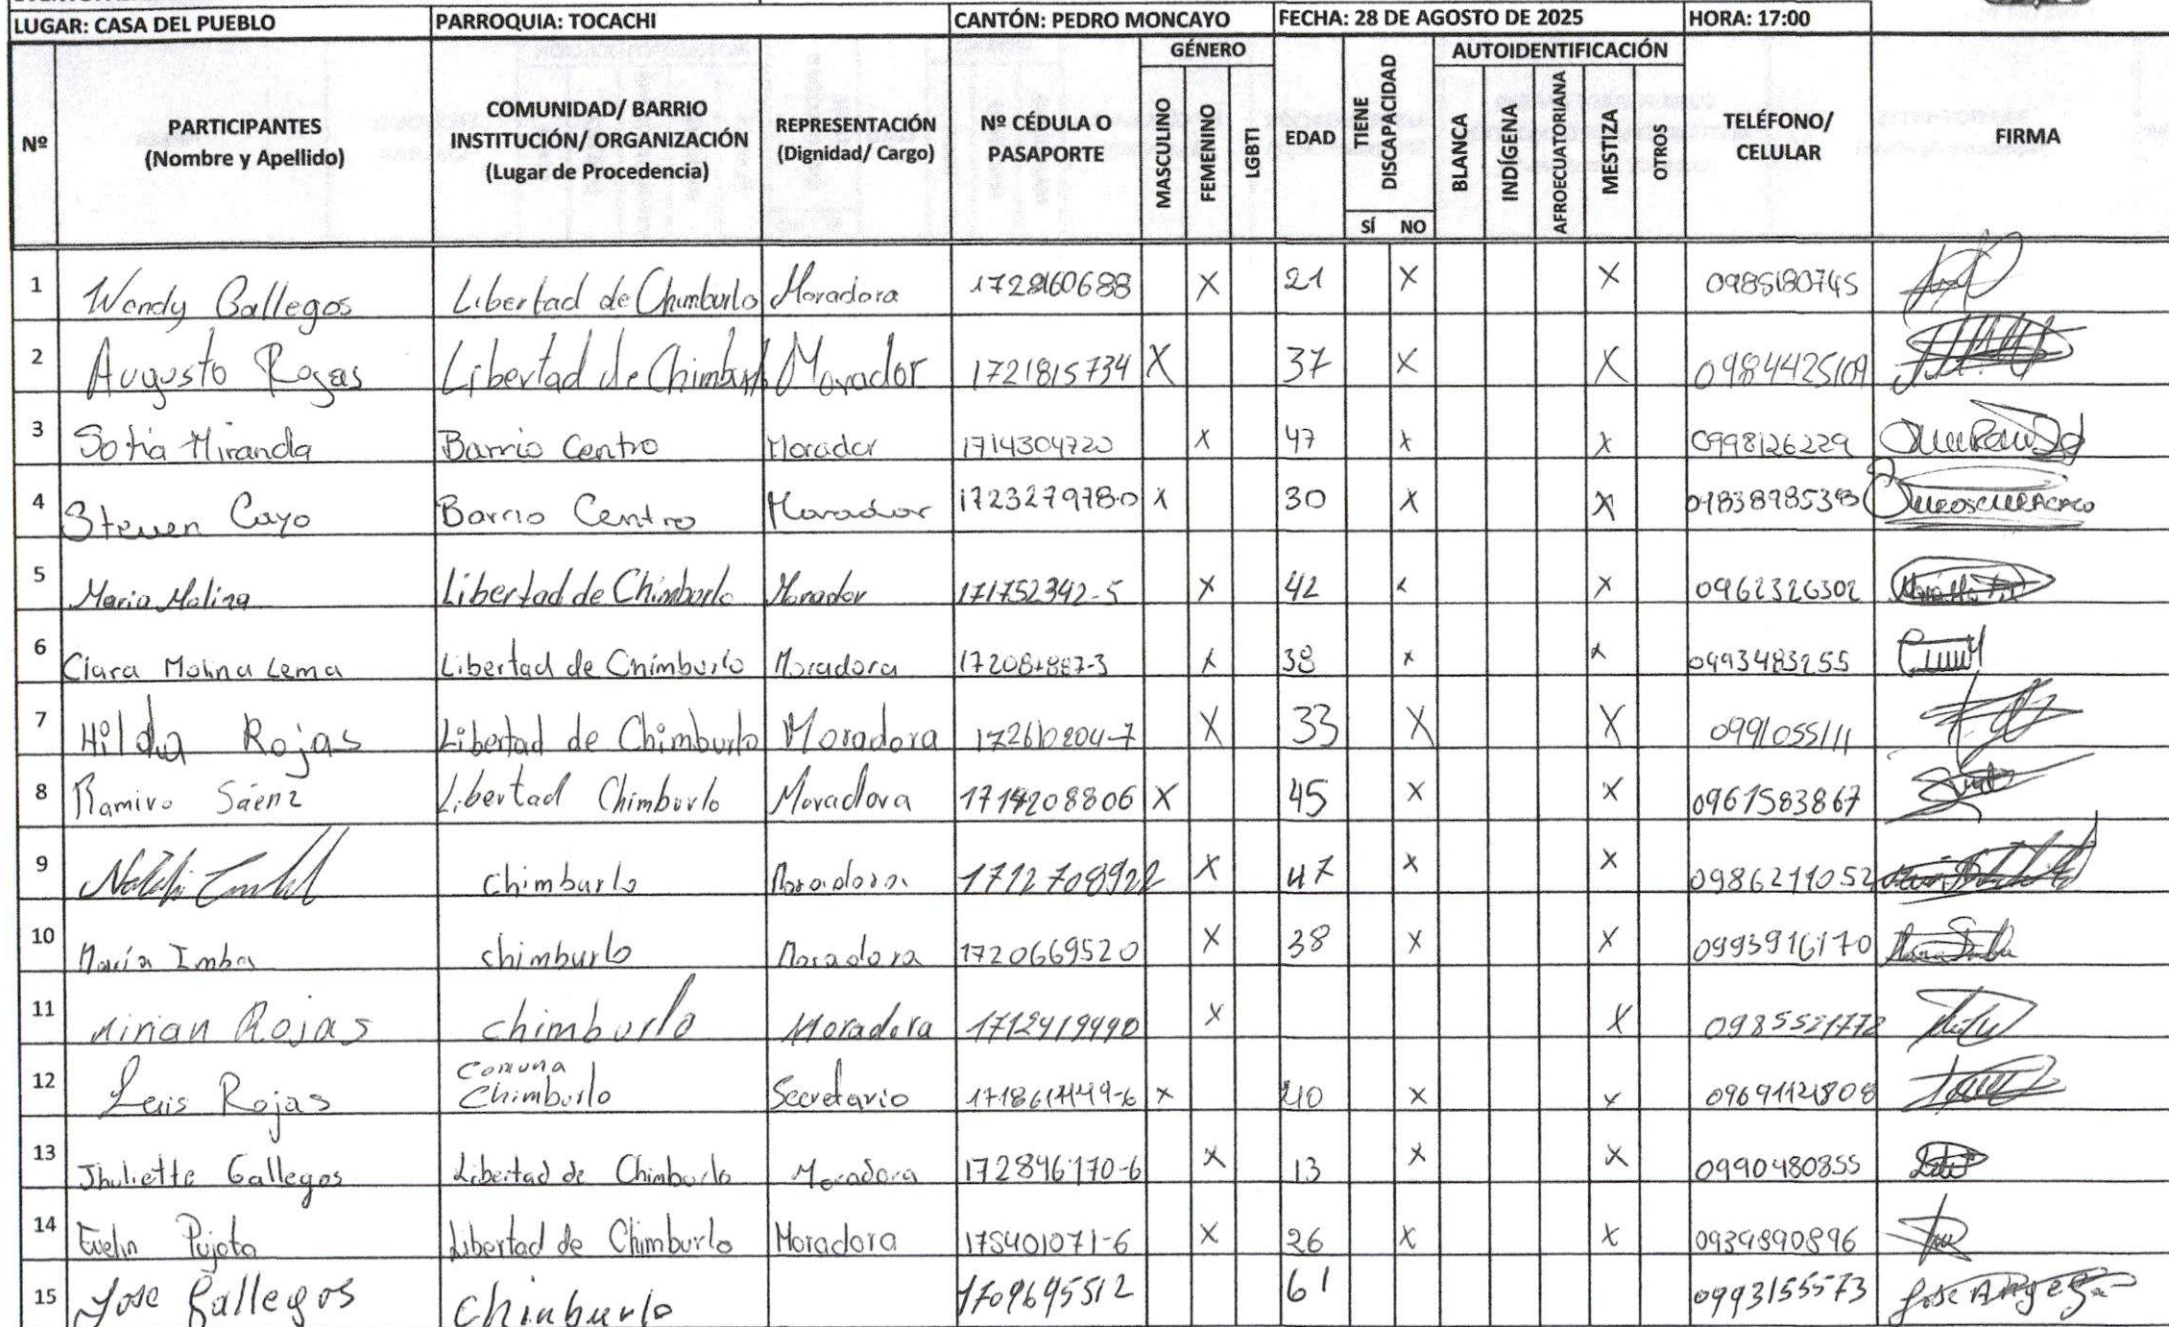 LUGAR: CASA DEL PUEBLO PARROQUIA: TOCACHI CANTÓN: PEDRO MONCAYO FECHA: 28 DE AGOSTO DE 2025 HORA: 17:00
Nº PARTICIPANTES (Nombre y Apellido) COMUNIDAD/ BARRIO INSTITUCIÓN/ ORGANIZACIÓN (Lugar de Procedencia) REPRESENTACIÓN (Dignidad/ Cargo) Nº CÉDULA O PASAPORTE GÉNERO MASCULINO FEMENINO LGBTI EDAD TIENE DISCAPACIDAD SÍ NO AUTOIDENTIFICACIÓN BLANCA INDÍGENA AFROECUATORIANA MESTIZA OTROS TELÉFONO/ CELULAR FIRMA
1 Wendy Gallegos Libertad de Chimburlo Moradora X 21 X X 0985180745
2 Augusto Rojas Libertad de Chimburlo Morador 1721815734 X 37 X X 0984425109
3 Sofia Miranda Barrio Centro Morador 1714304720 X 47 X X 0998126229
4 Steven Cayo Barrio Centro Morador 172327978-0 X 30 X X
5 Maria Molina Libertad de Chimburlo Morador 171752342-5 X 42 X X 0962326302
6 Clara Molina Lema Libertad de Chimburlo Moradora X 38 X X 0993483255
7 Hilda Rojas Libertad de Chimburlo Moradora 172610204-7 X 33 X X 0991055111
8 Ramiro Sáenz Libertad Chimburlo Moradora X 45 X X 0961583867
9 chimburlo Moradora X 47 X X 0986211052
10 María Imba chimburlo Moradora 1720669520 X 38 X X 0993916170
11 Mirian Rojas chimburlo Moradora X X
12 Luis Rojas Comuna Chimburlo Secretario X 40 X X
13 Jhuliette Gallegos Libertad de Chimburlo Moradora 172896170-6 X 13 X X 0990480855
14 Evelin Pujota Libertad de Chimburlo Moradora 175401071-6 X 26 X X 0939890896
15 Jose Gallegos Chinburlo 1709695512 61 0993155573